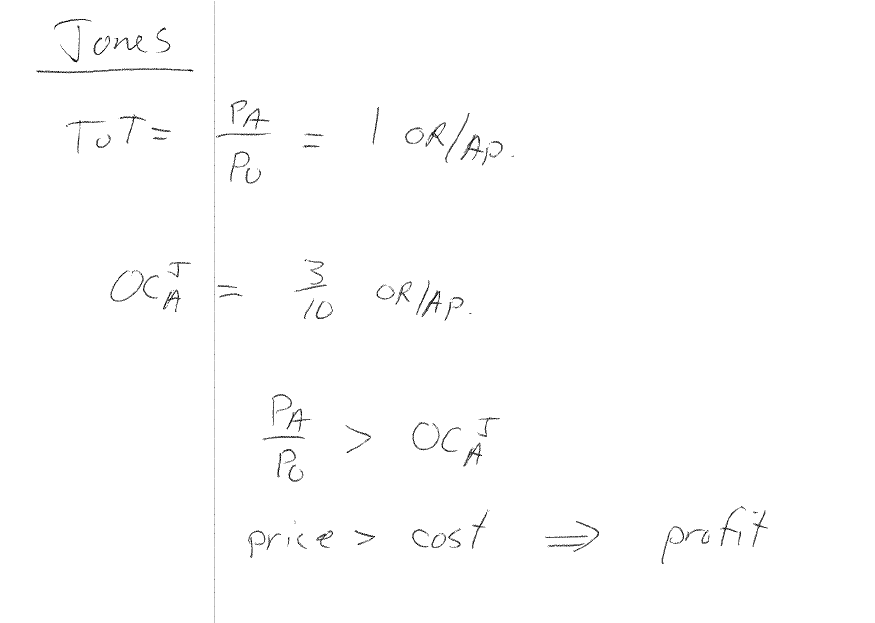 Jones
ToT = PA/PO = 1 OR/AP.
OC_A^J = 3/10 OR/AP.
PA/PO > OC_A^J
price > cost ⇒ profit